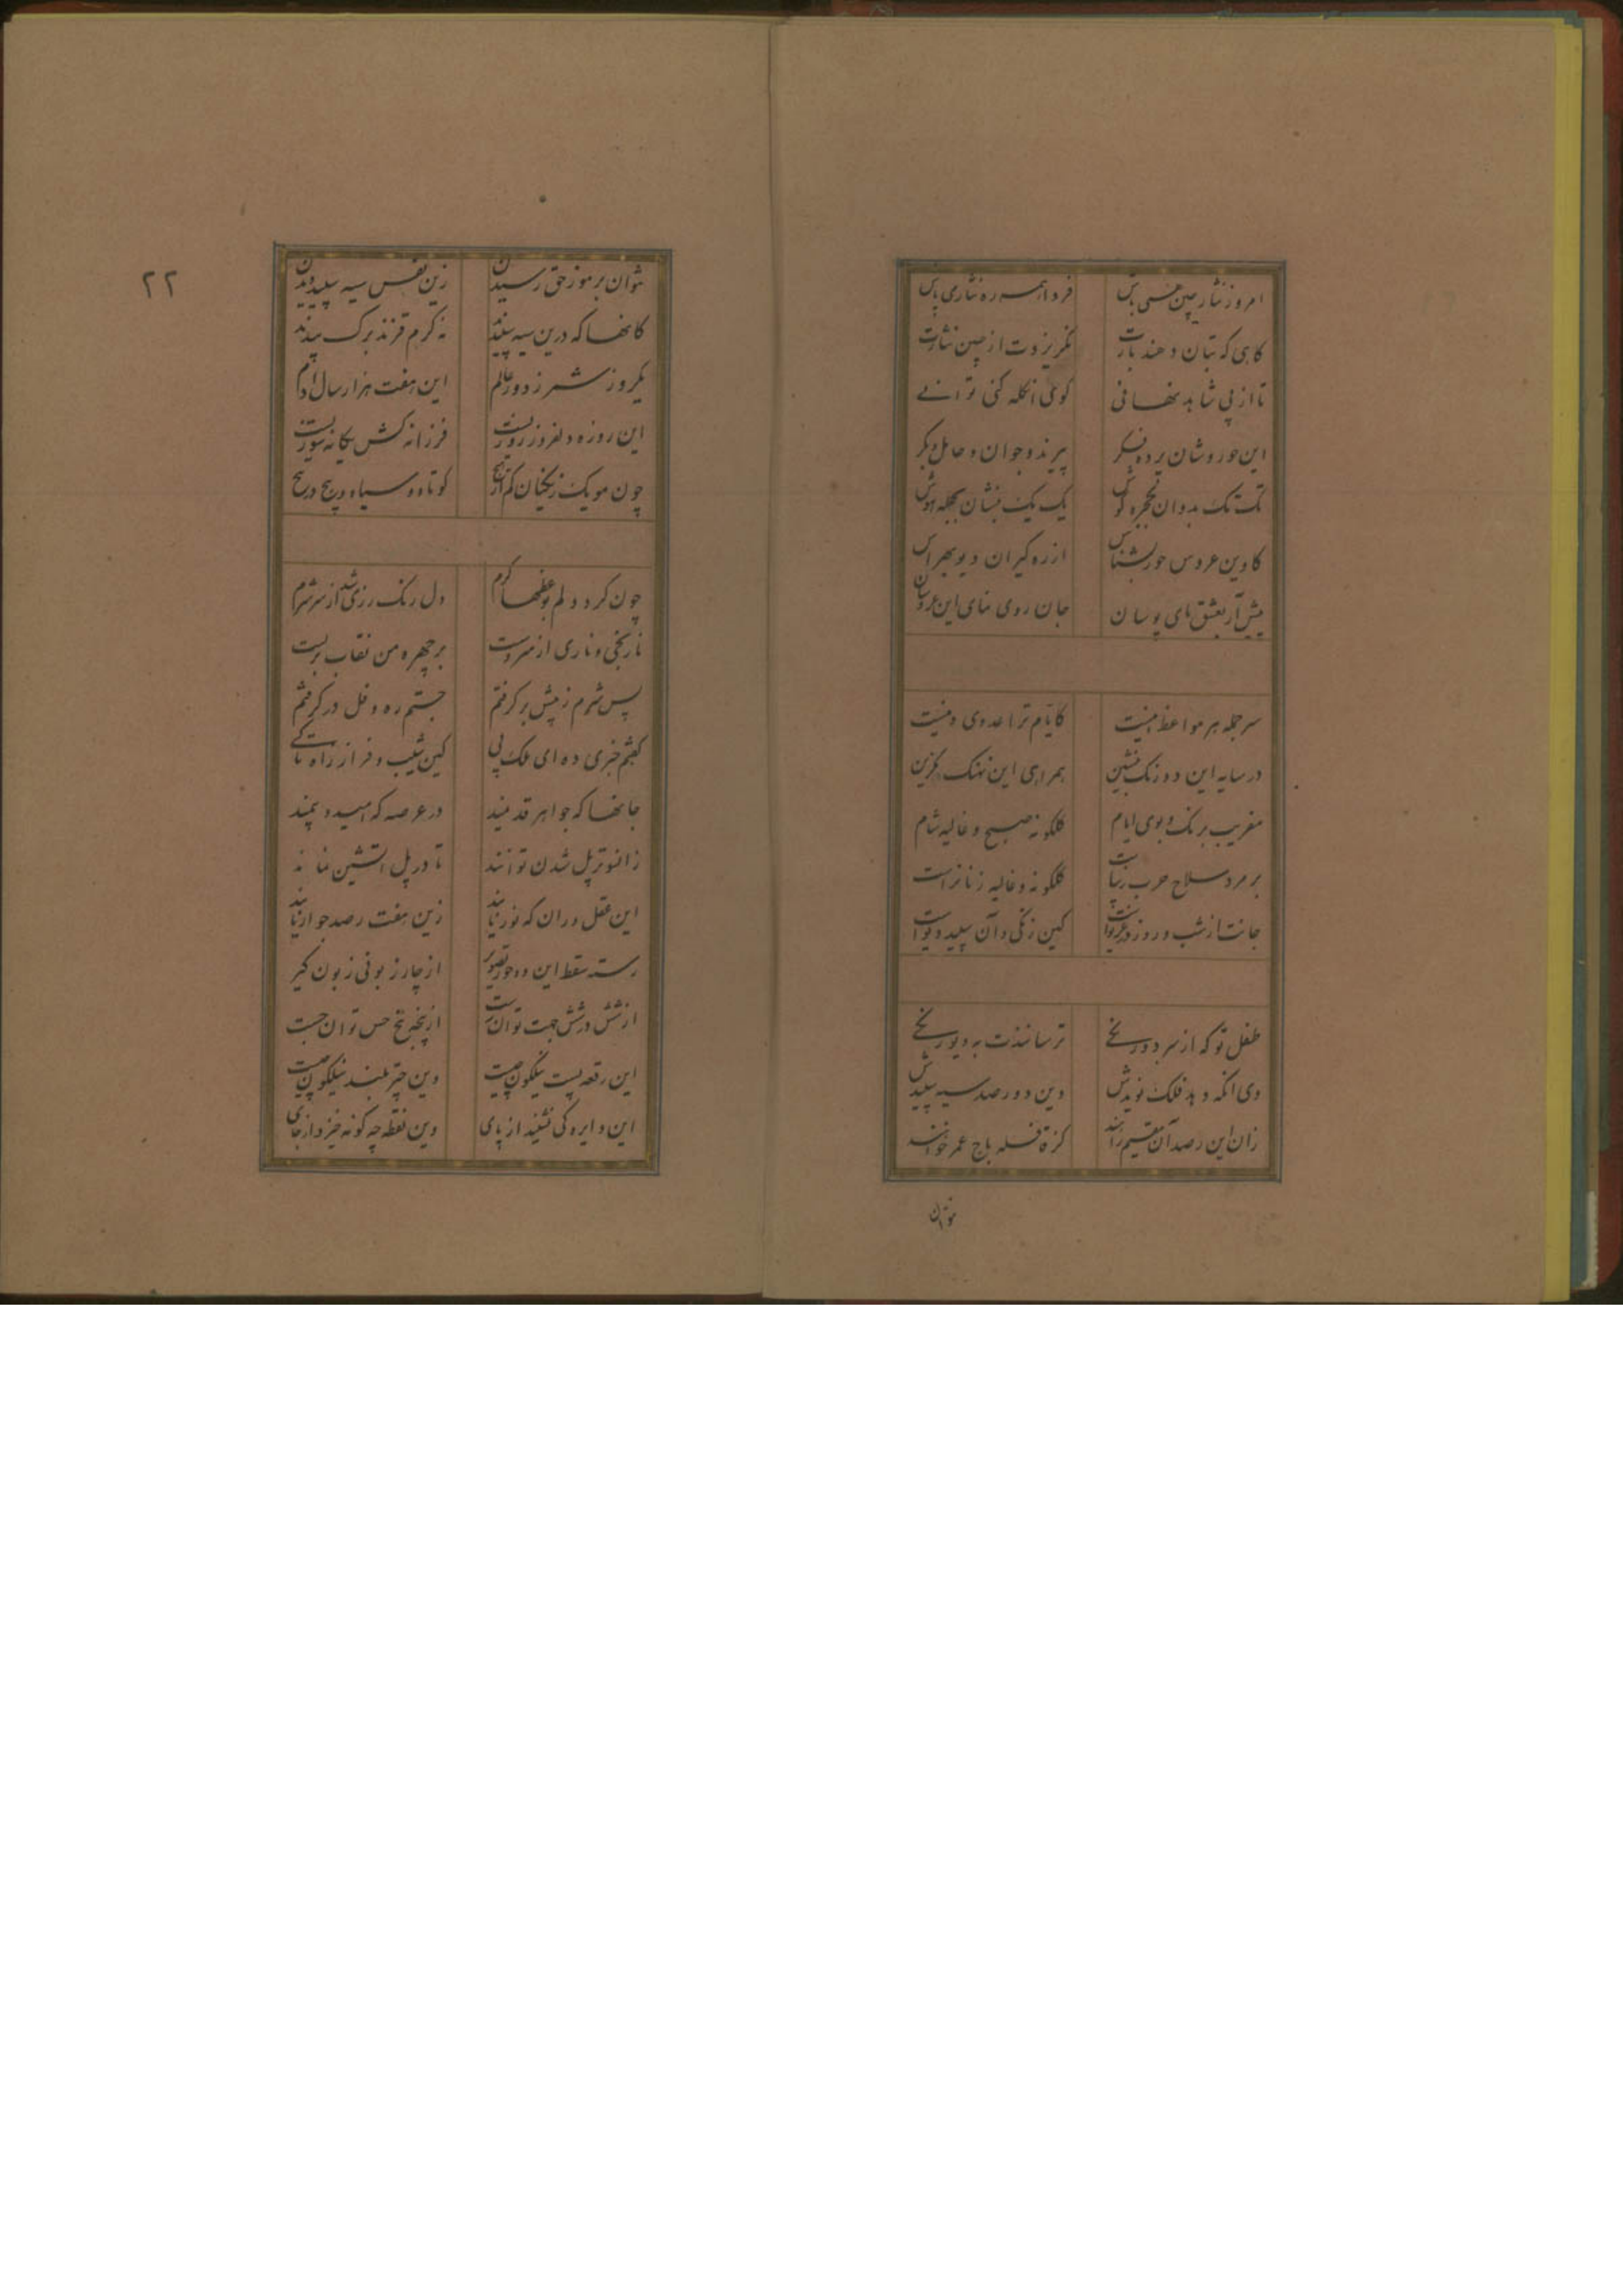 امروز نثار چین همی باش فردا همه ره نثاری پاش
گاهی که بتان دهند بارت نگریزدت از چین نثارت
تا از پی شاهد نهانی کوی انکله کنی توانی
این حوروشان پرده پیکر پرند و جوان و حامل و بکر
تک تک بدوان بحجره گوش یک یک بنشان بحجله هوش
کاوین عروس حور بشناس از ره گیران دیو بهراس
پیش آر بعشق پای بوسان جان روی نمای این عروسان
سرجمله هر مواعظ اینست کایام ترا عدوی دینست
در سایه این دو رنگ منشین همراهی این نهنگ مگزین
مفریب برنگ و بوی ایام گلگونه صبح و غالیه شام
بر مرد سلاح حرب زیباست گلگونه و غالیه زنانراست
جانت از شب و روز در غریوست کین زنگی و آن سپید دیوست
طفل تو که از سر دورنگی ترسانندت به دیو زنگی
وی انگه دهد فلک نویدش وین دو رصد سیه سپیدش
زان این رصد آن مقیم رانند کز قافله باج عمر خواهند
نتوان
۲۲
نتوان برموز حق رسیدن زین نفس سیه سپید دیدن
کانها که درین سیه سپیدند نه کرم قزند برگ بیدند
یکروز شمر ز دور عالم این هفت هزار سال آدم
این روزه دلفروز روزیست فرزانه کش یگانه سوزیست
چون مویک زنگیان کم از هیچ کوتاه و سیاه و پیچ در پیچ
چون کرد دلم بوعظها گرم دل رنگ رزی شد از سر شرم
نارنجی و ناری از سر دست بر چهره من نقاب بربست
پس شرم ز پیش برگرفتم جستم ره و فل در گرفتم
گفتم خبری ده ای ملک پی کین شیب و فراز راه تا کی
جانها که جواهر قدمیند در عرصه که امید و بیمند
زانسوتر پل شدن توانند تا در پل اتشین نمانند
این عقل وران که نور یابند زین هفت رصد جواز یابند
رسته سقط این دو حور تصویر از چار زبونی زبون گیر
از شش در شش جهت توان رست از پنجه پنج حس توان جست
این رقعه پست نیلگون چیست وین چتر بلند نیلگون چیست
این دایره کی نشیند از پای وین نقطه چه گونه خیزد از جای